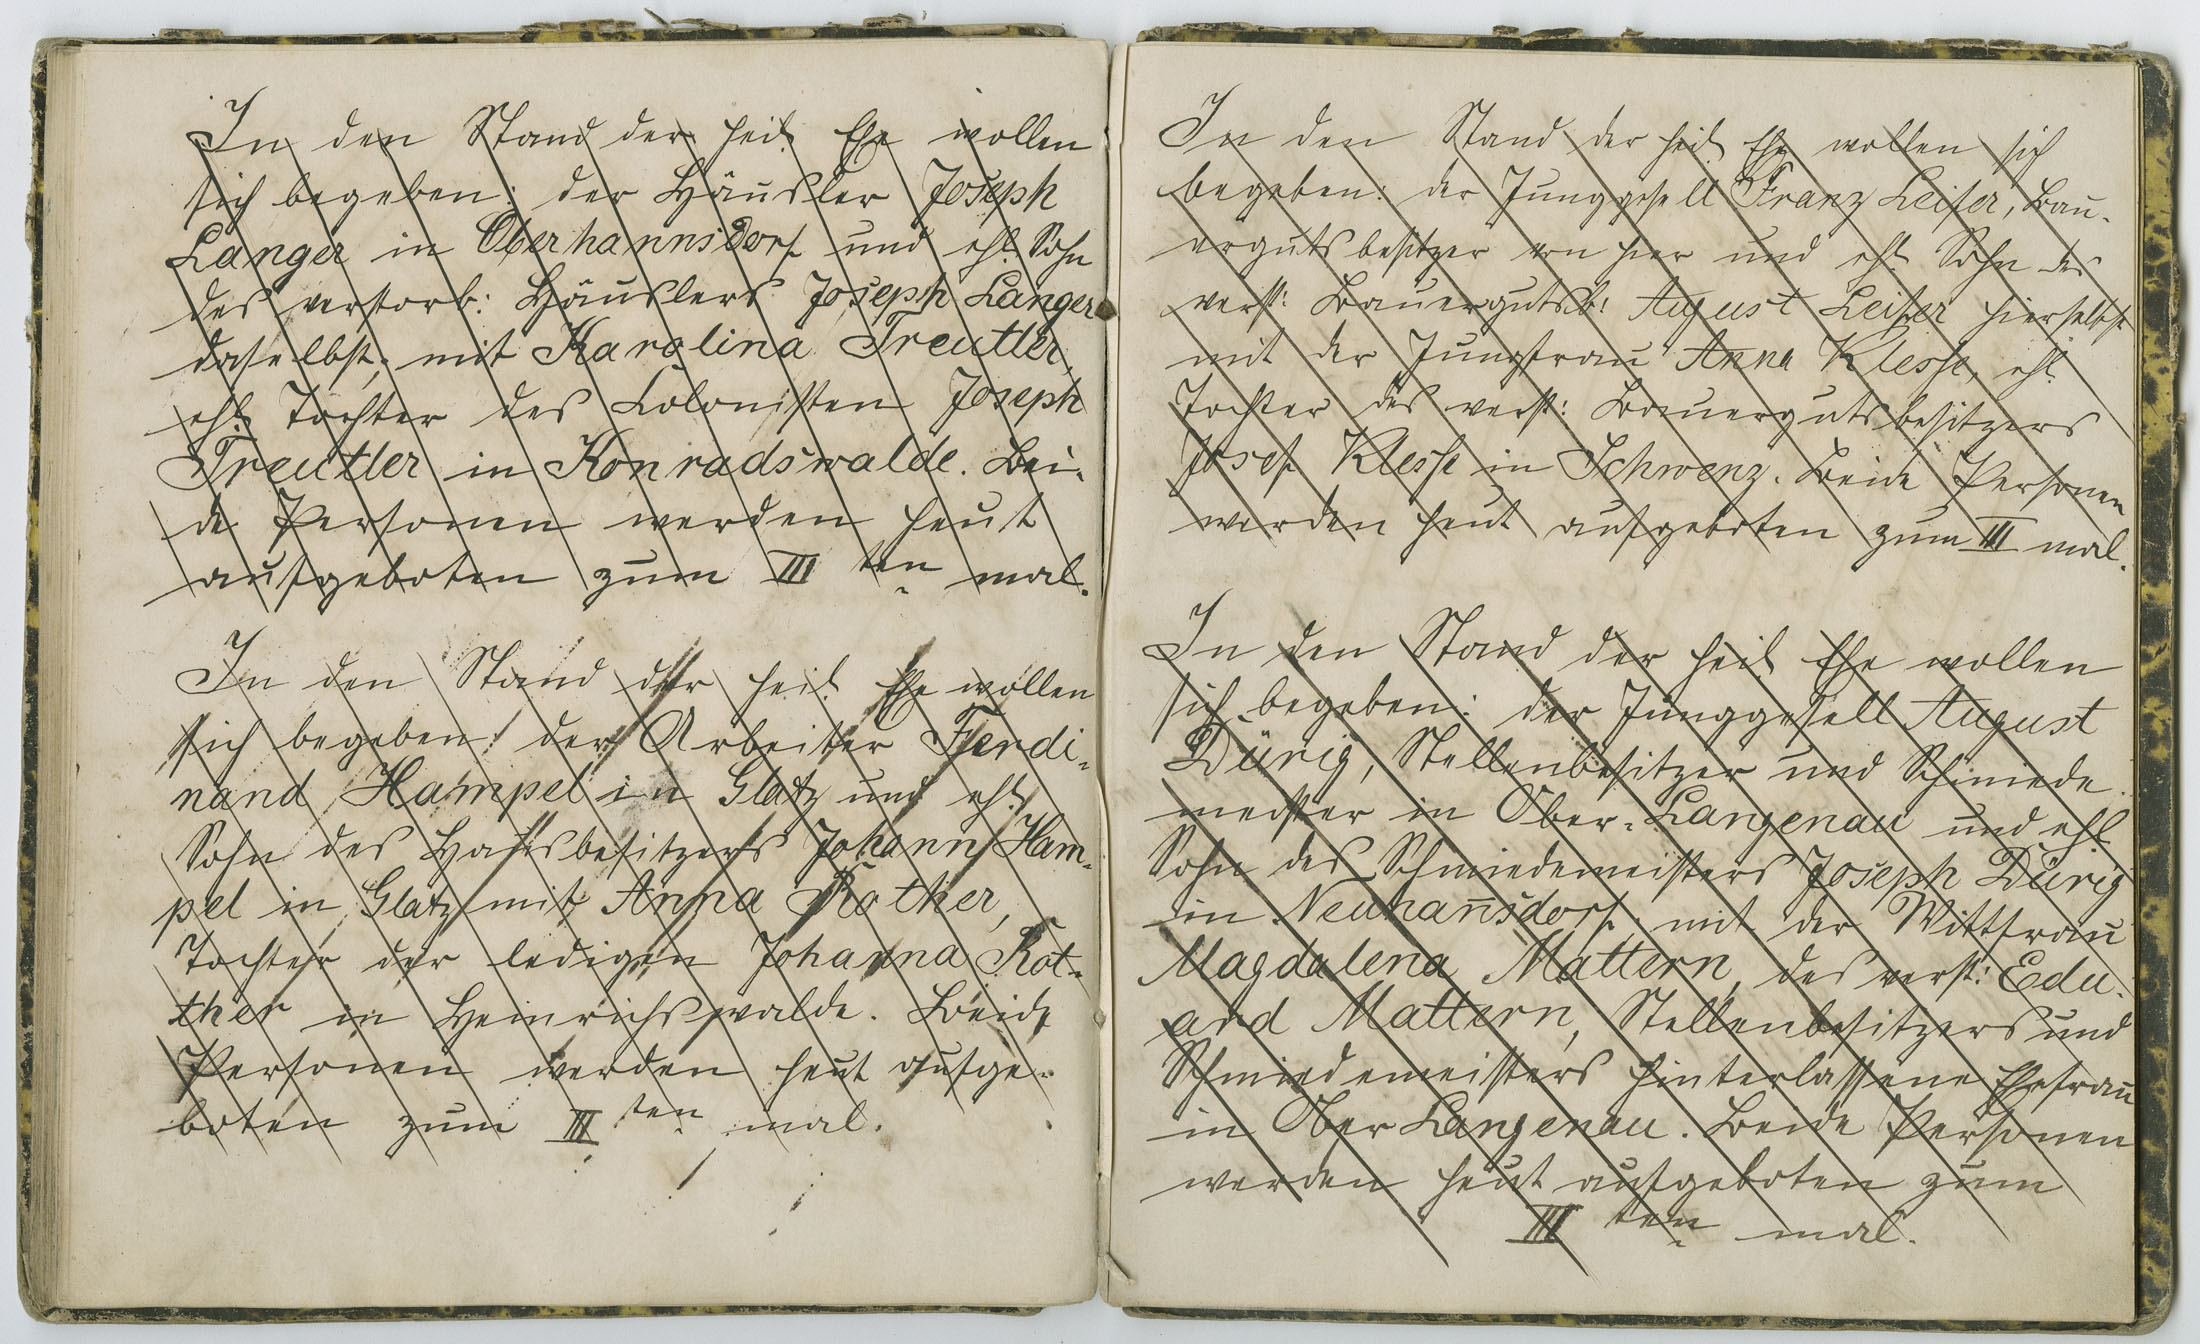 In den Stand der heil. Ehe wollen
sich begeben: der Häusler Joseph
Langer in Oberhannsdorf und ehl. Sohn
des verstorb: Häuslers Joseph Langer
daselbst, mit Karolina Treutler,
ehl. Tochter des Colonisten Joseph
Treutler in Konradswalde. Bei-
de Personen werden heut
aufgeboten zum III ten mal.
In den Stand der heil. Ehe wollen
sich begeben: der Arbeiter Ferdi-
nand Hampel in Glatz und ehl.
Sohn des Hausbesitzers Johann Ham-
pel in Glatz mit Anna Rother,
Tochter der ledigen Johanna Rot-
ther in Heinrichswalde. Beide
Personen werden heut aufge-
boten zum III ten mal.
In den Stand der heil. Ehe wollen sich
begeben: der Junggesell Franz Leiser, Bau-
ergutsbesitzer von hier und ehl. Sohn des
verst: Bauergutsb: August Leiser hierselbst
mit der Jungfrau Anna Klesse, ehl.
Tochter des verst: Bauergutsbesitzers
Josef Klesse in Schwenz. Beide Personen
werden heut aufgeboten zum III mal.
In den Stand der heil. Ehe wollen
sich begeben: der Junggesell August
Dürig, Stellenbesitzer und Schmiede-
meister in Ober-Langenau und ehl.
Sohn des Schmiedemeisters Joseph Dürig
in Neuhan̄sdorf, mit der Wittfrau
Magdalena Mattern, des verst: Edu-
ard Mattern, Stellenbesitzers und
Schmiedemeisters hinterlassene Ehefrau
in Ober Langenau. Beide Personen
werden heut aufgeboten zum
III ten mal.